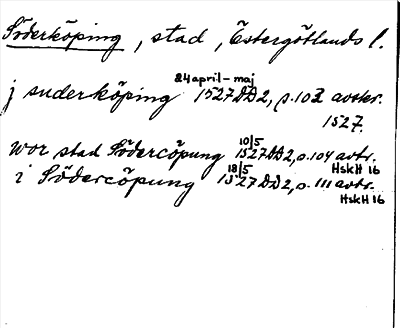 Söderköping, stad, Östergötlands l.
24 april - maj
j suderköping 1527 DD2, s. 103 avskr.
1527.
10/5
wor stad Södercöpung 1527 DD2, s. 104 avtr.
HskH 16
18/5
i Södercöpung 1527 DD2, s. 111 avtr.
HskH 16